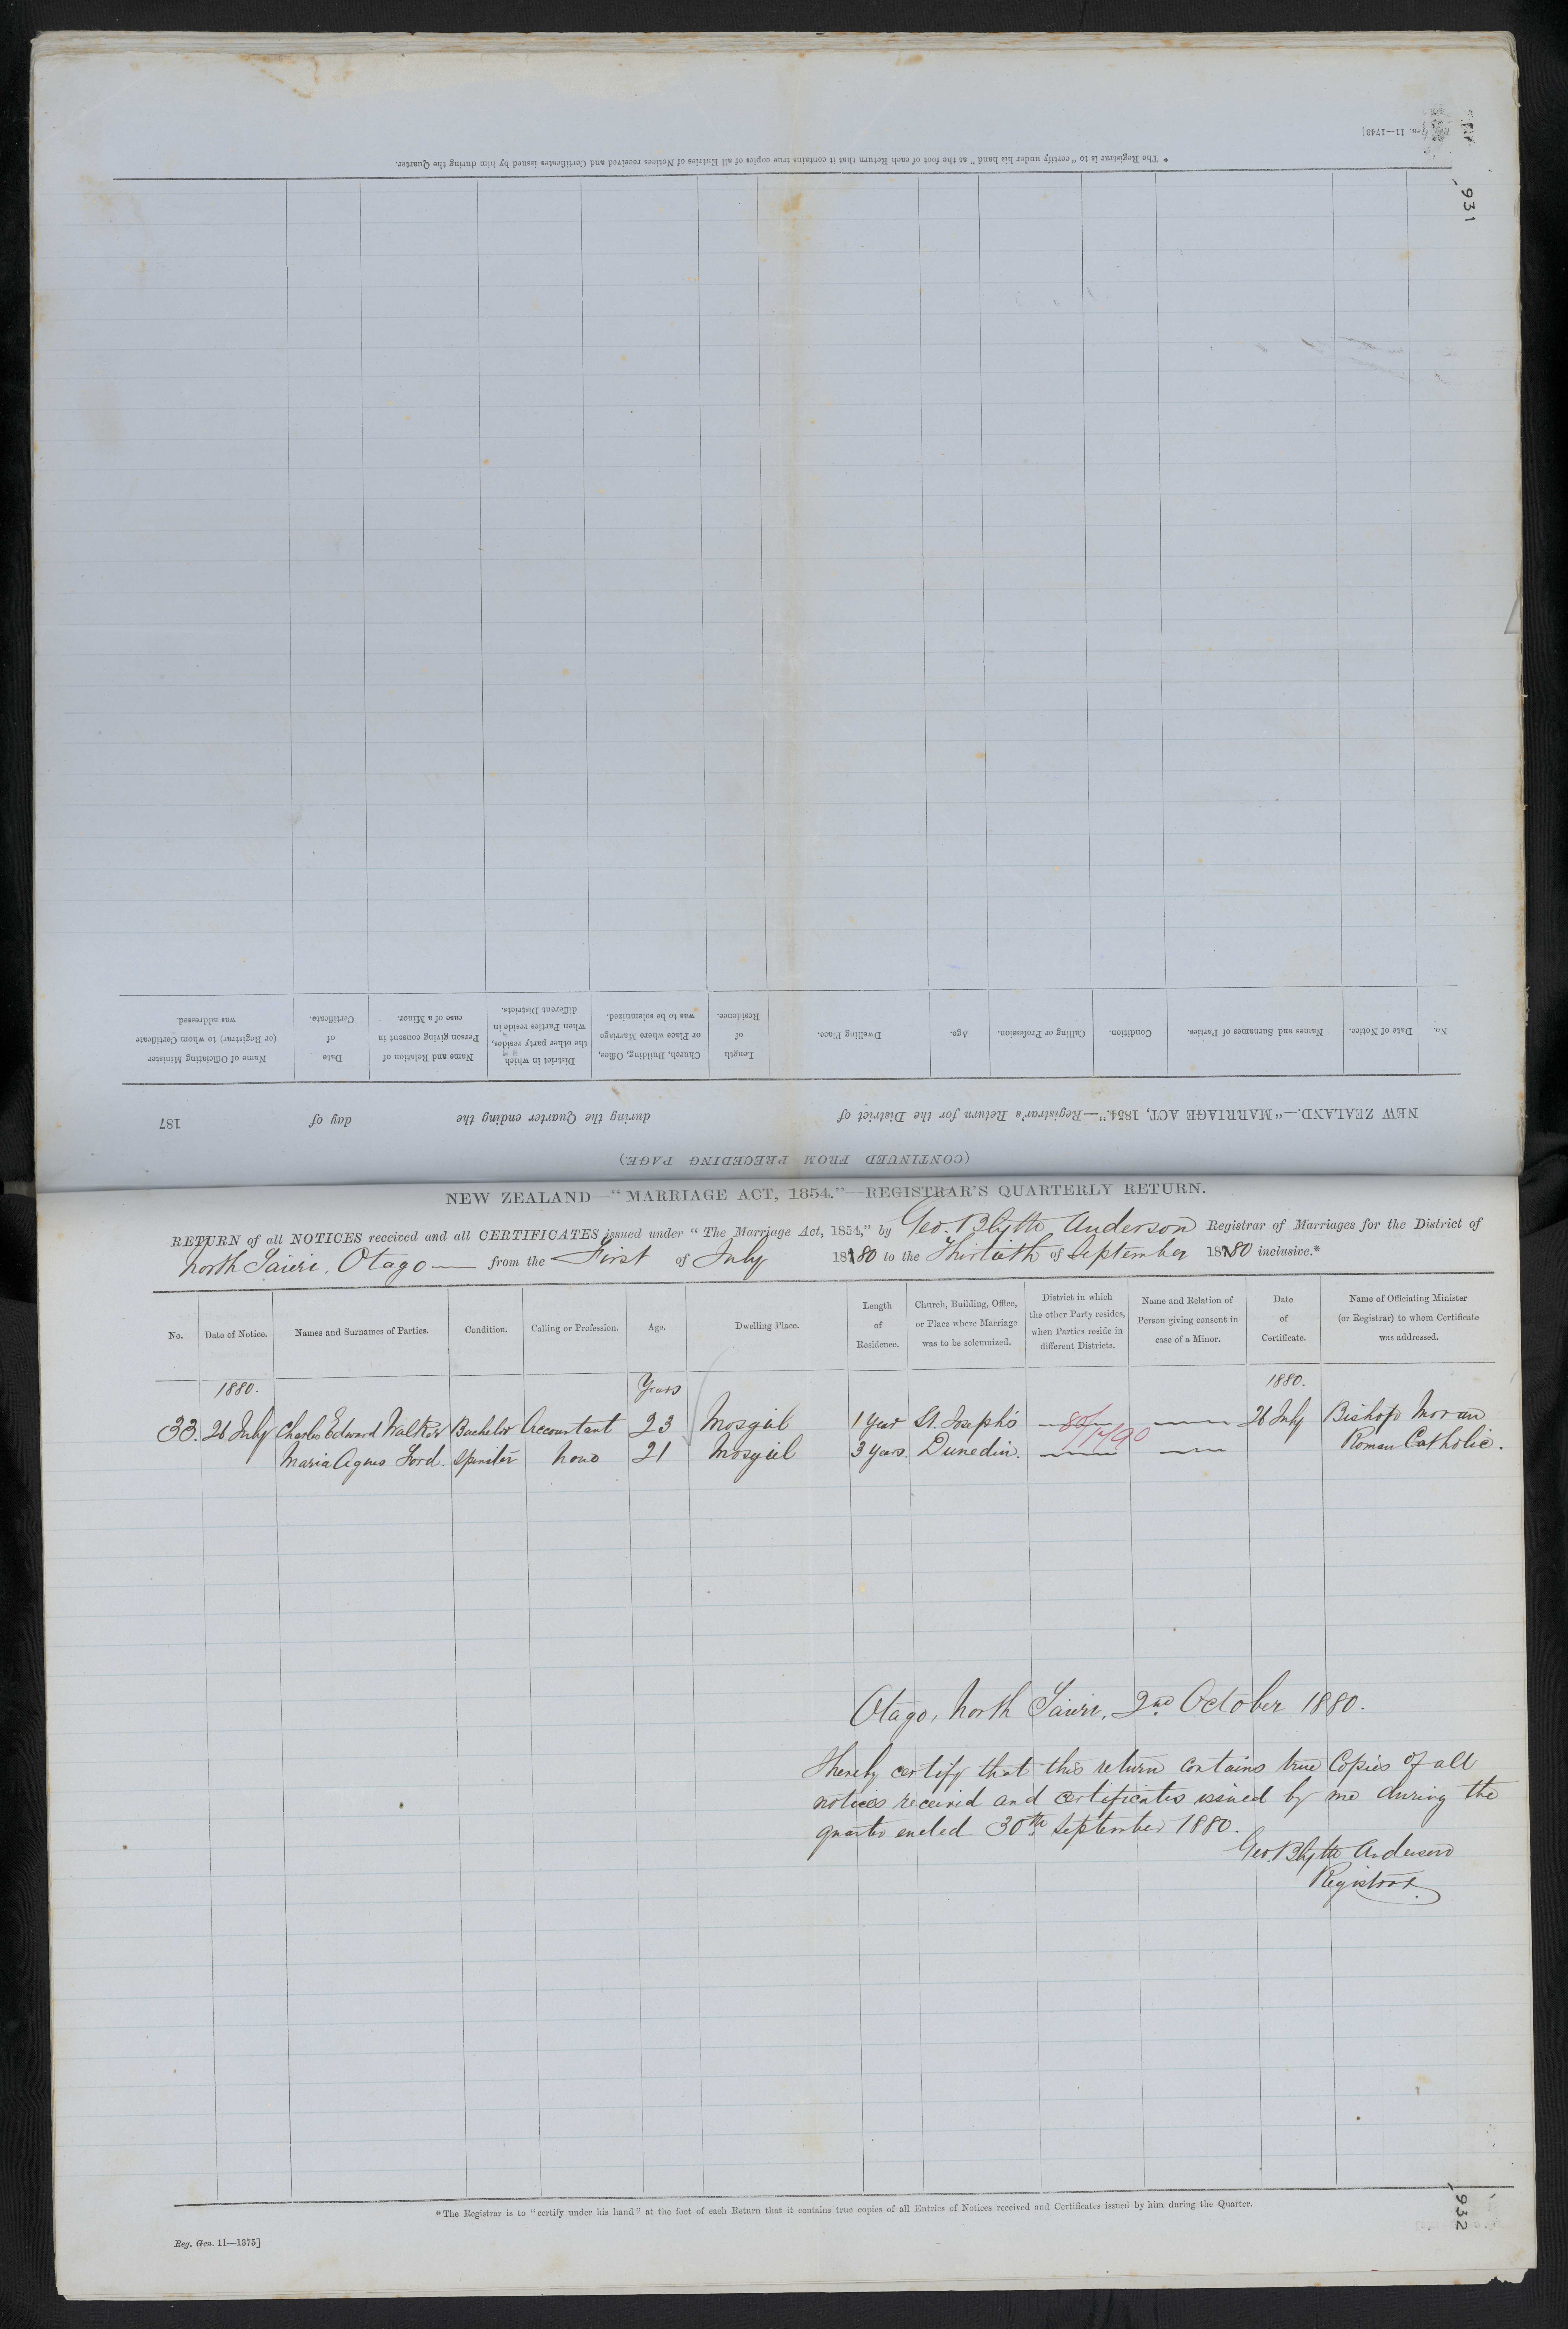 Reg. Gen. 11—1743]
931
* The Registrar is to "certify under his hand" at the foot of each Return that it contains true copies of all Entries of Notices received and Certificates issued by him during the Quarter.
(CONTINUED FROM PRECEDING PAGE.)
NEW ZEALAND.—"MARRIAGE ACT, 1854."—Registrar's Return for the District of during the Quarter ending the day of 187
No. Date of Notice. Names and Surnames of Parties. Condition. Calling or Profession. Age. Dwelling Place. Length of Residence. Church, Building, Office, or Place where Marriage was to be solemnized. District in which the other party resides, when Parties reside in different Districts. Name and Relation of Person giving consent in case of a Minor. Date of Certificate. Name of Officiating Minister (or Registrar) to whom Certificate was addressed.
NEW ZEALAND—"MARRIAGE ACT, 1854."—REGISTRAR'S QUARTERLY RETURN.
RETURN of all NOTICES received and all CERTIFICATES issued under "The Marriage Act, 1854," by Geo. Blyth Anderson Registrar of Marriages for the District of
North Taieri, Otago — from the First of July 1880 to the Thirtieth of September 1880 inclusive.*
No. Date of Notice. Names and Surnames of Parties. Condition. Calling or Profession. Age. Dwelling Place. Length of Residence. Church, Building, Office, or Place where Marriage was to be solemnized. District in which the other Party resides, when Parties reside in different Districts. Name and Relation of Person giving consent in case of a Minor. Date of Certificate. Name of Officiating Minister (or Registrar) to whom Certificate was addressed.
1880. Years 1880.
33. 26 July Charles Edward Walker Bachelor Accountant 23 Mosgiel 1 year St. Joseph's — — 26 July Bishop Moran
Maria Agnes Ford. Spinster none 21 Mosgiel 3 years. Dunedin. — — Roman Catholic.
Otago, North Taieri, 2nd October 1880.
I hereby certify that this return contains true Copies of all
notices received and certificates issued by me during the
quarter ended 30th September 1880.
Geo. Blyth Anderson
Registrar.
* The Registrar is to "certify under his hand" at the foot of each Return that it contains true copies of all Entries of Notices received and Certificates issued by him during the Quarter.
932
Reg. Gen. 11—1375]